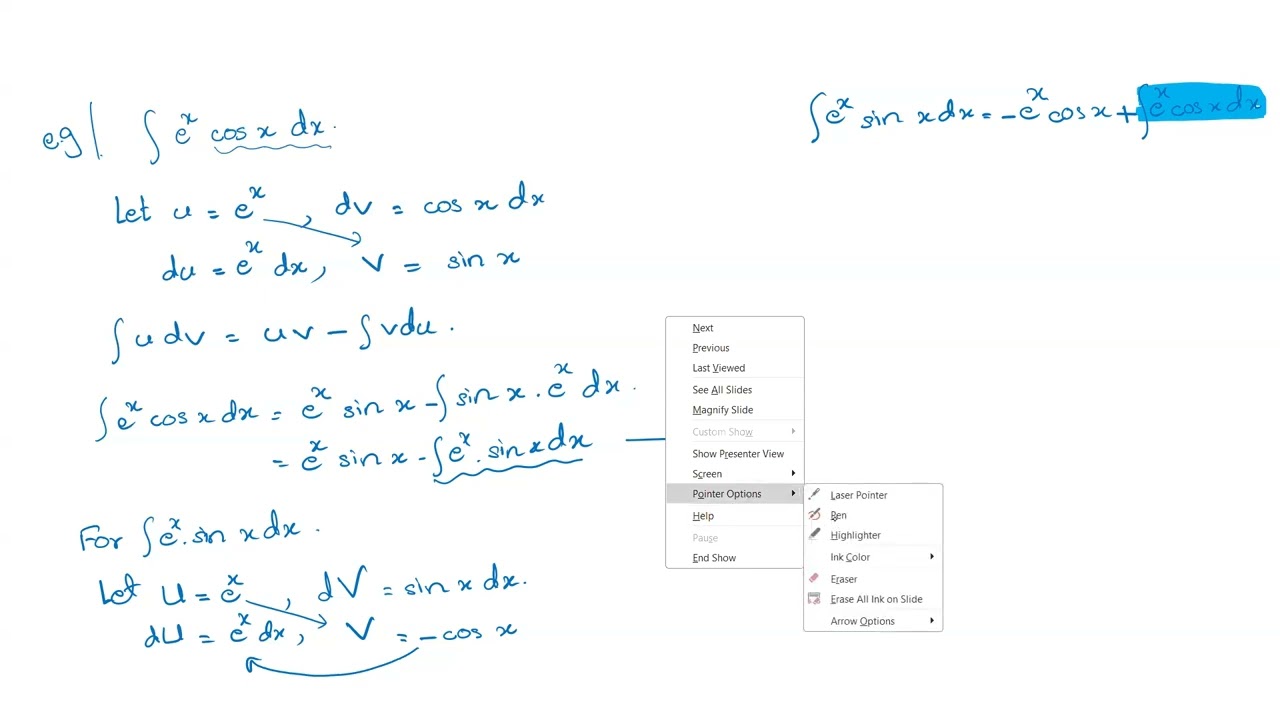 eg| ∫ e^x cos x dx.
Let u = e^x , dv = cos x dx
du = e^x dx, v = sin x
∫ u dv = uv - ∫ v du .
∫ e^x cos x dx = e^x sin x - ∫ sin x . e^x dx .
= e^x sin x - ∫ e^x . sin x dx —
For ∫ e^x . sin x dx .
Let U = e^x , dV = sin x dx.
dU = e^x dx, V = - cos x
∫ e^x sin x dx = - e^x cos x + ∫ e^x cos x dx
Next
Previous
Last Viewed
See All Slides
Magnify Slide
Custom Show
Show Presenter View
Screen
Pointer Options
Help
Pause
End Show
Laser Pointer
Pen
Highlighter
Ink Color
Eraser
Erase All Ink on Slide
Arrow Options